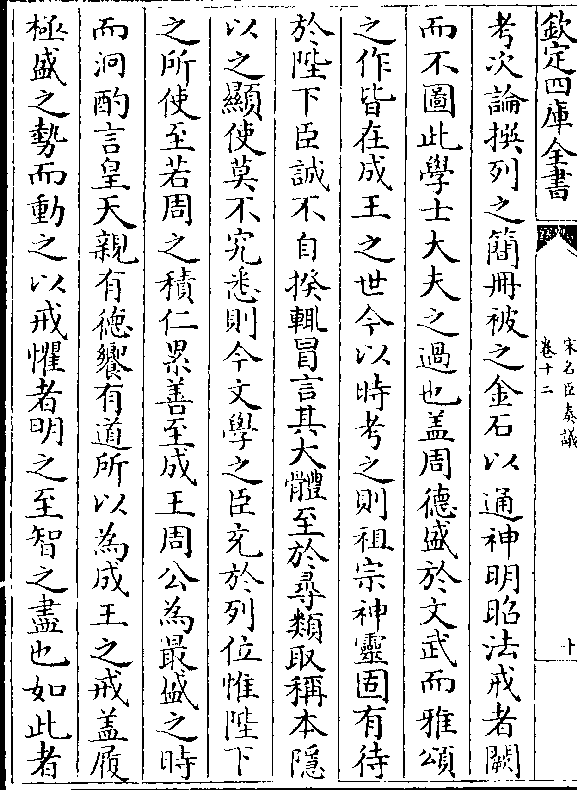 欽定四庫全書
宋名臣奏議
卷十二
十
考次論撰列之簡冊被之金石以通神明昭法戒者闕
而不圖此學士大夫之過也盖周德盛於文武而雅頌
之作皆在成王之世今以時考之則祖宗神靈固有待
於陛下臣誠不自揆輒冒言其大體至於尋類取稱本隱
以之顯使莫不究悉則今文學之臣充於列位惟陛下
之所使至若周之積仁累善至成王周公為最盛之時
而泂酌言皇天親有德饗有道所以為成王之戒盖履
極盛之勢而動之以戒懼者明之至智之盡也如此者